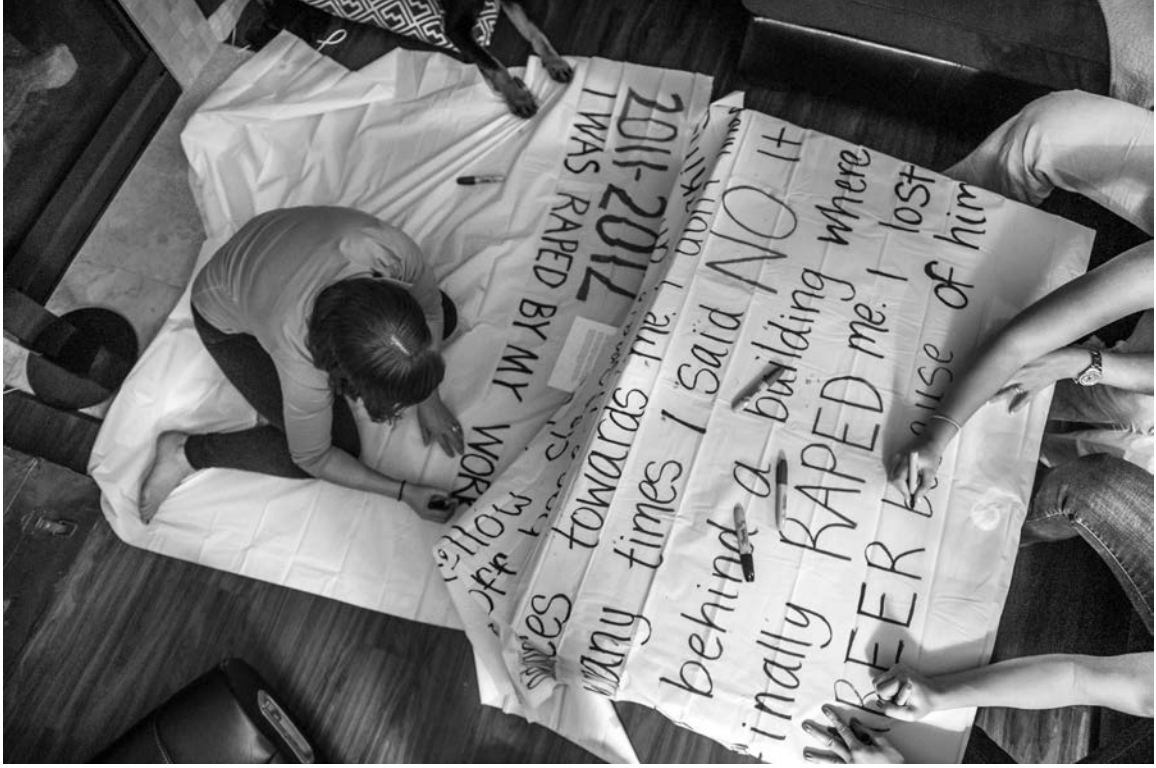 2011-2012
I WAS RAPED BY MY WORK
towards me. I
many times I said NO It
behind a building where
finally RAPED me. I lost
REER because of him